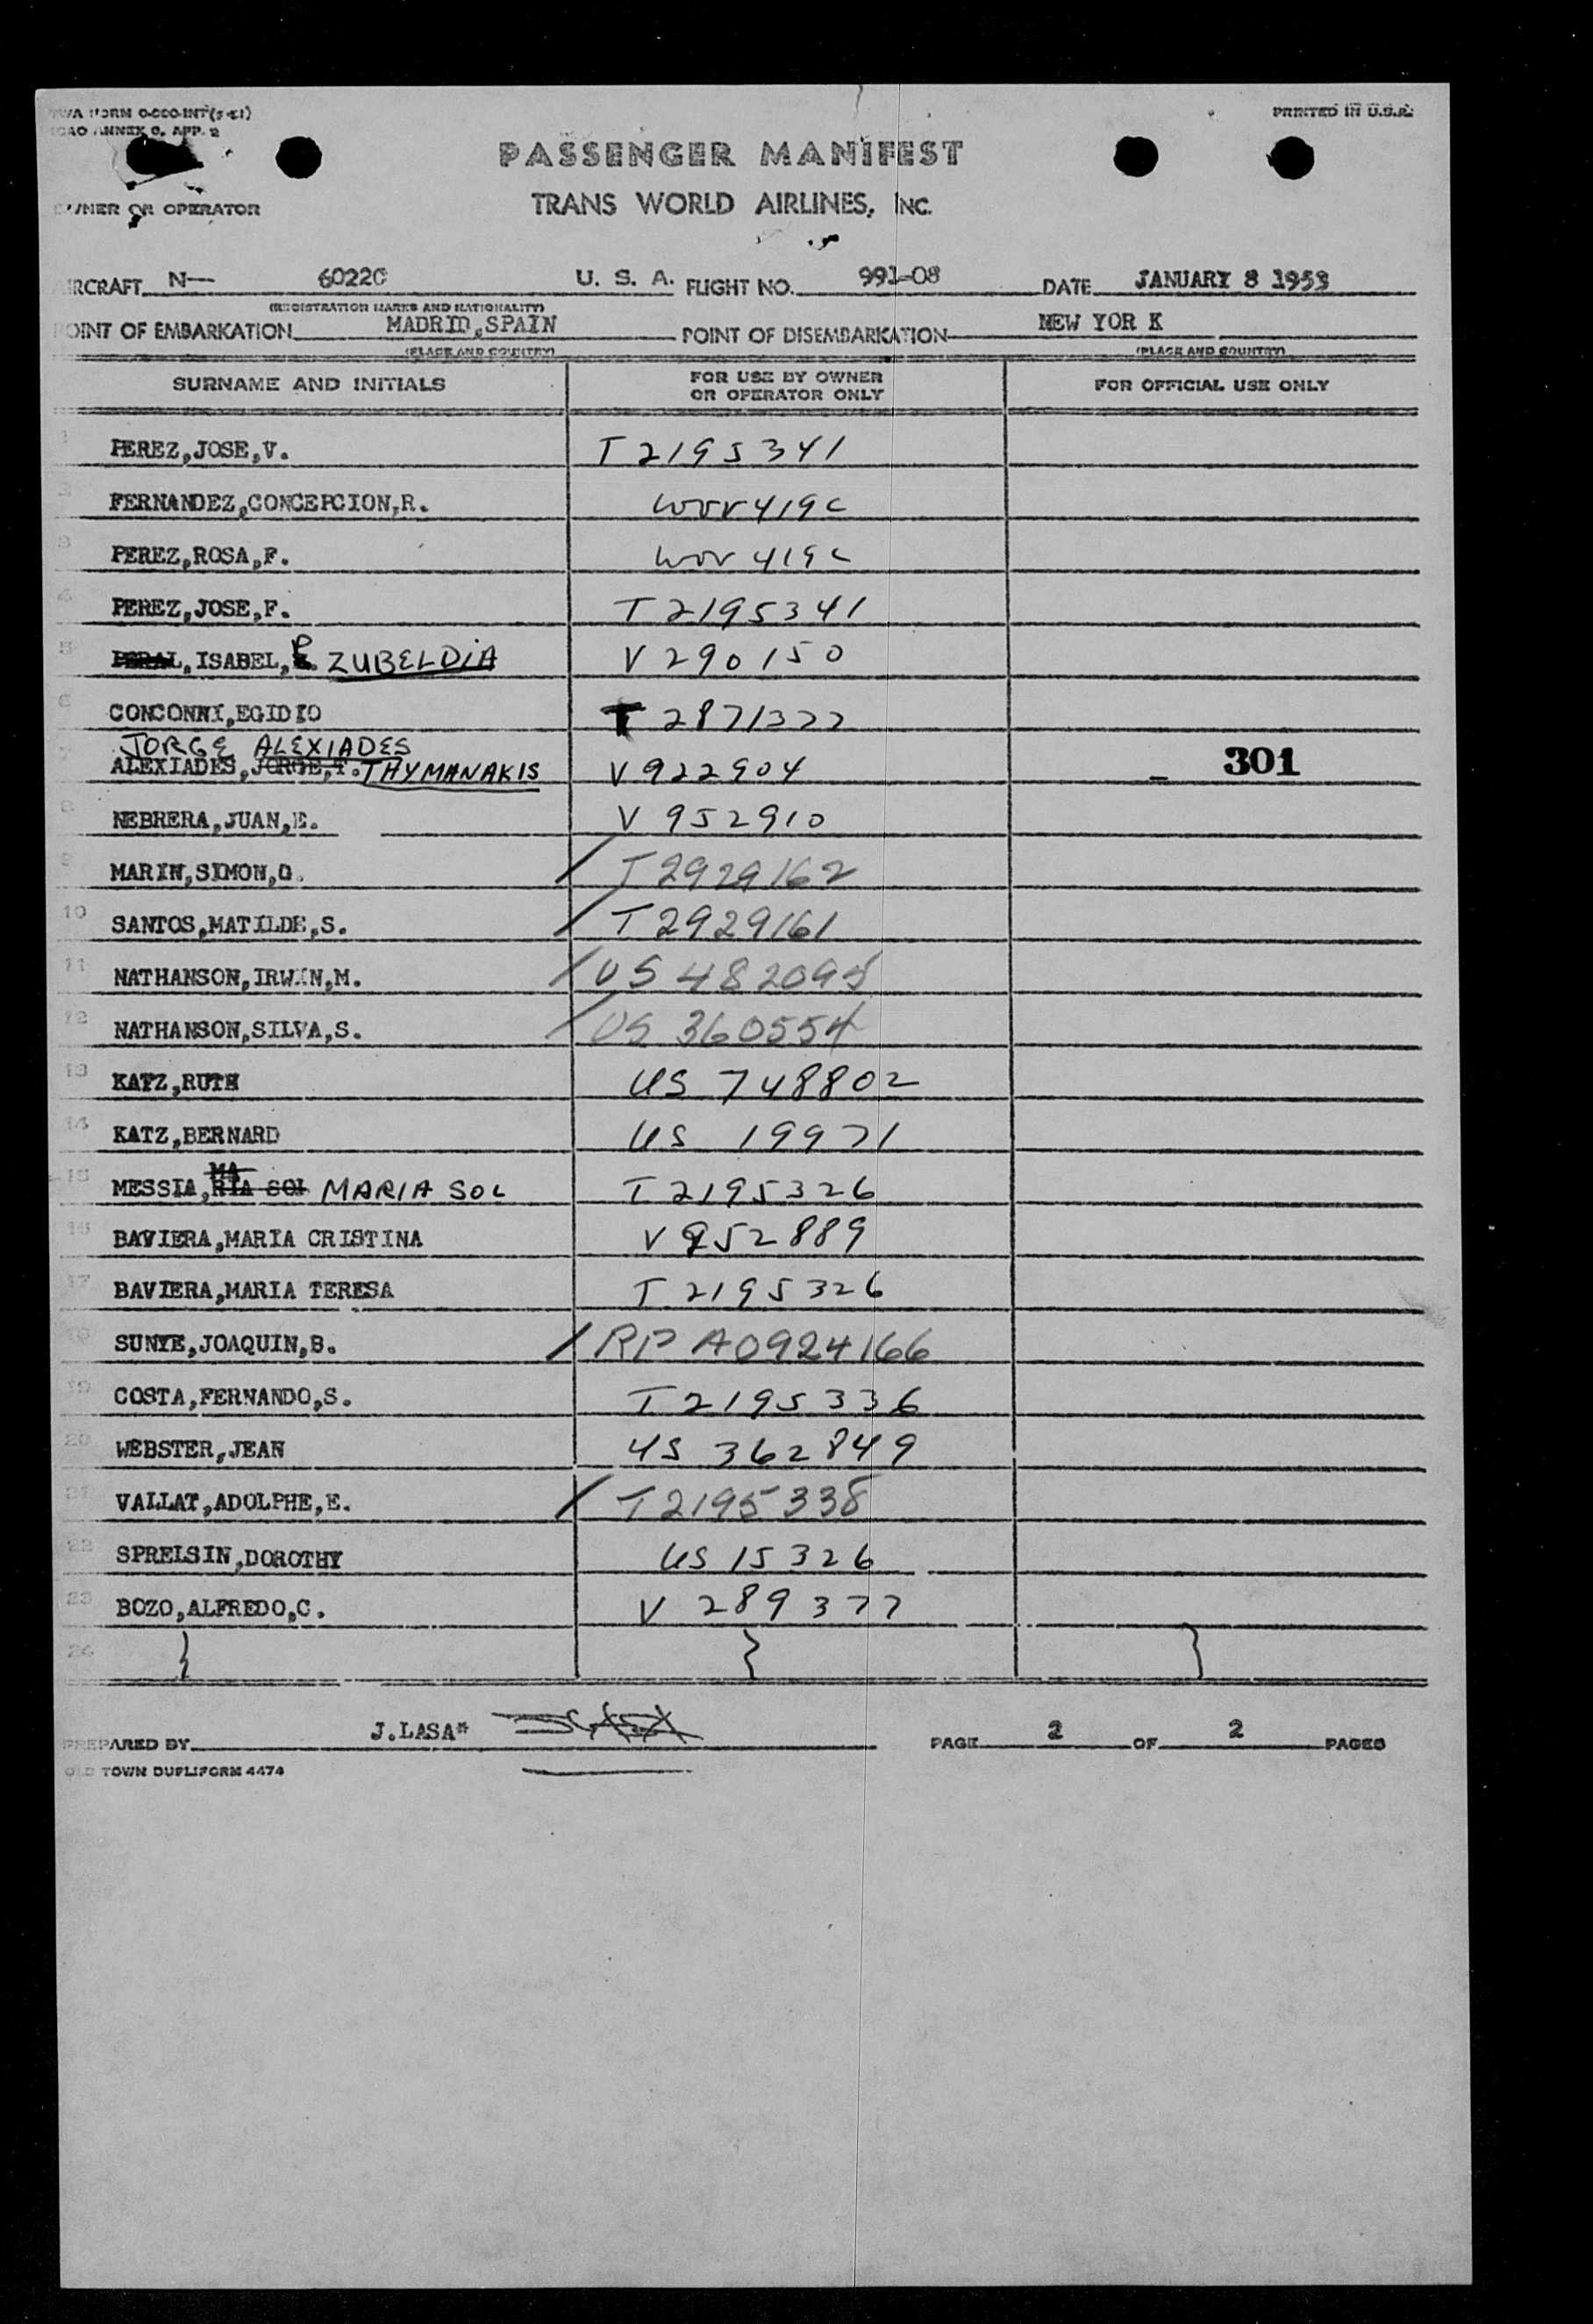 TWA FORM O-800-INT (5-51)
ICAO ANNEX 9, APP. 2
PRINTED IN U.S.A.
PASSENGER MANIFEST
OWNER OR OPERATOR TRANS WORLD AIRLINES, INC.
AIRCRAFT N— 6022C U. S. A. FLIGHT NO. 991-08 DATE JANUARY 8 1953
(REGISTRATION MARKS AND NATIONALITY)
POINT OF EMBARKATION MADRID,SPAIN POINT OF DISEMBARKATION NEW YOR K
(PLACE AND COUNTRY) (PLACE AND COUNTRY)
SURNAME AND INITIALS FOR USE BY OWNER OR OPERATOR ONLY FOR OFFICIAL USE ONLY
1 PEREZ,JOSE,V. T 2195341
2 FERNANDEZ,CONCEPCION,R. 419C
3 PEREZ,ROSA,F. 419C
4 PEREZ,JOSE,F. T 2195341
5 PERAL, ISABEL, P. ZUBELDIA V 290150
6 CONCONNI,EGIDIO T 2871377
JORGE ALEXIADES
7 ALEXIADES,JORGE,T. THYMANAKIS V 922904 301
8 NEBRERA,JUAN,E. V 952910
9 MARIN,SIMON,O. / T2929162
10 SANTOS,MATILDE,S. / T2929161
11 NATHANSON,IRWIN,M. / US 482095
12 NATHANSON,SILVA,S. / US 360554
13 KATZ,RUTH US 748802
14 KATZ,BERNARD US 19971
MA
15 MESSIA,RIA SOL MARIA SOL T 2195326
16 BAVIERA,MARIA CRISTINA V 952889
17 BAVIERA,MARIA TERESA T 2195326
18 SUNYE,JOAQUIN,B. / RP A0924166
19 COSTA,FERNANDO,S. T 2195336
20 WEBSTER,JEAN US 362849
21 VALLAT,ADOLPHE,E. / T2195338
22 SPRELSIN,DOROTHY US 15326
23 BOZO,ALFREDO,C. V 289377
24
PREPARED BY J.LASA* PAGE 2 OF 2 PAGES
OLD TOWN DUPLIFORM 4474